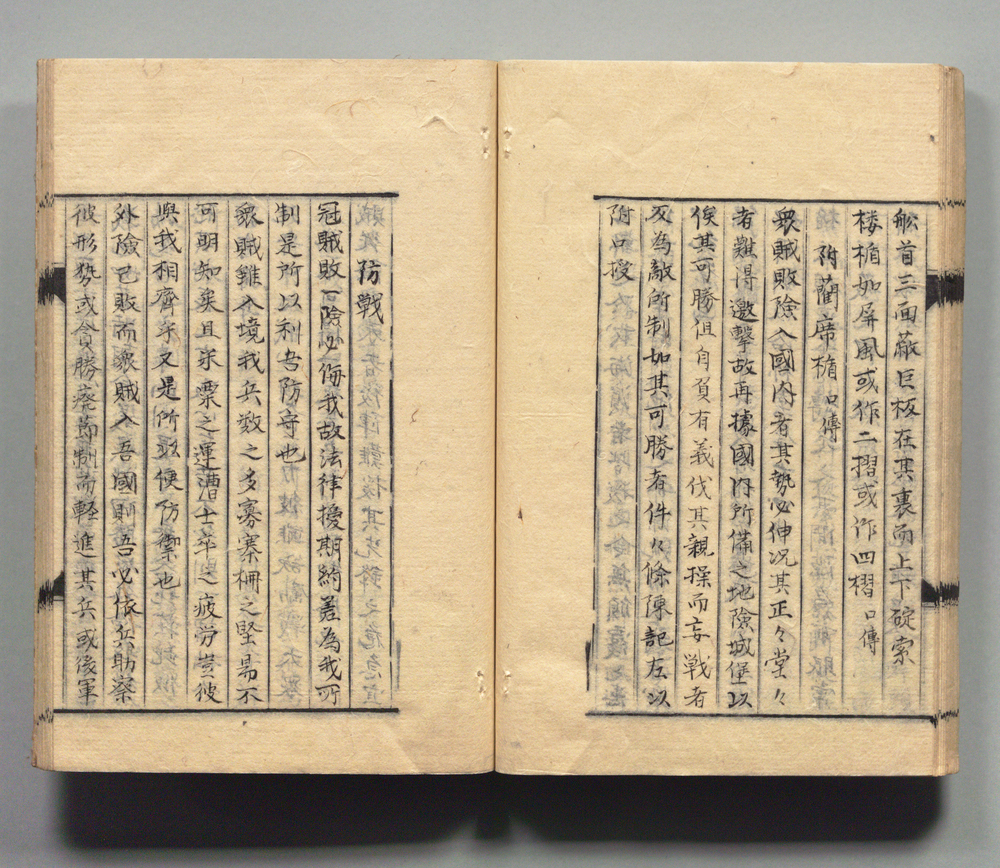 舩首三面蔽巨板在其裏而上下碇索
楼楯如屏風或作二摺或作四摺 口傳
附藺席楯 口傳
衆賊敗險入國内者其勢必伸况其正々堂々
者難得邀撃故再據國内所備之地險城堡以
俟其可勝但自負有義伐其親操而妄戰者
反為敵所制如其可勝者件々條陳記左以
附口授
防戰
冠賊敗一險必侮我故法律擾期約差為我所
制是所以利吾防守也
衆賊雖入境我兵数之多寡寨柵之堅易不
可明知矣且米粟之運漕士卒之疲労豈彼
與我相齊乎又是所以便防禦也
外險已敗而衆賊入吾國則吾必依兵助察
彼形㔟或貪勝廃節制而軽進其兵或後軍